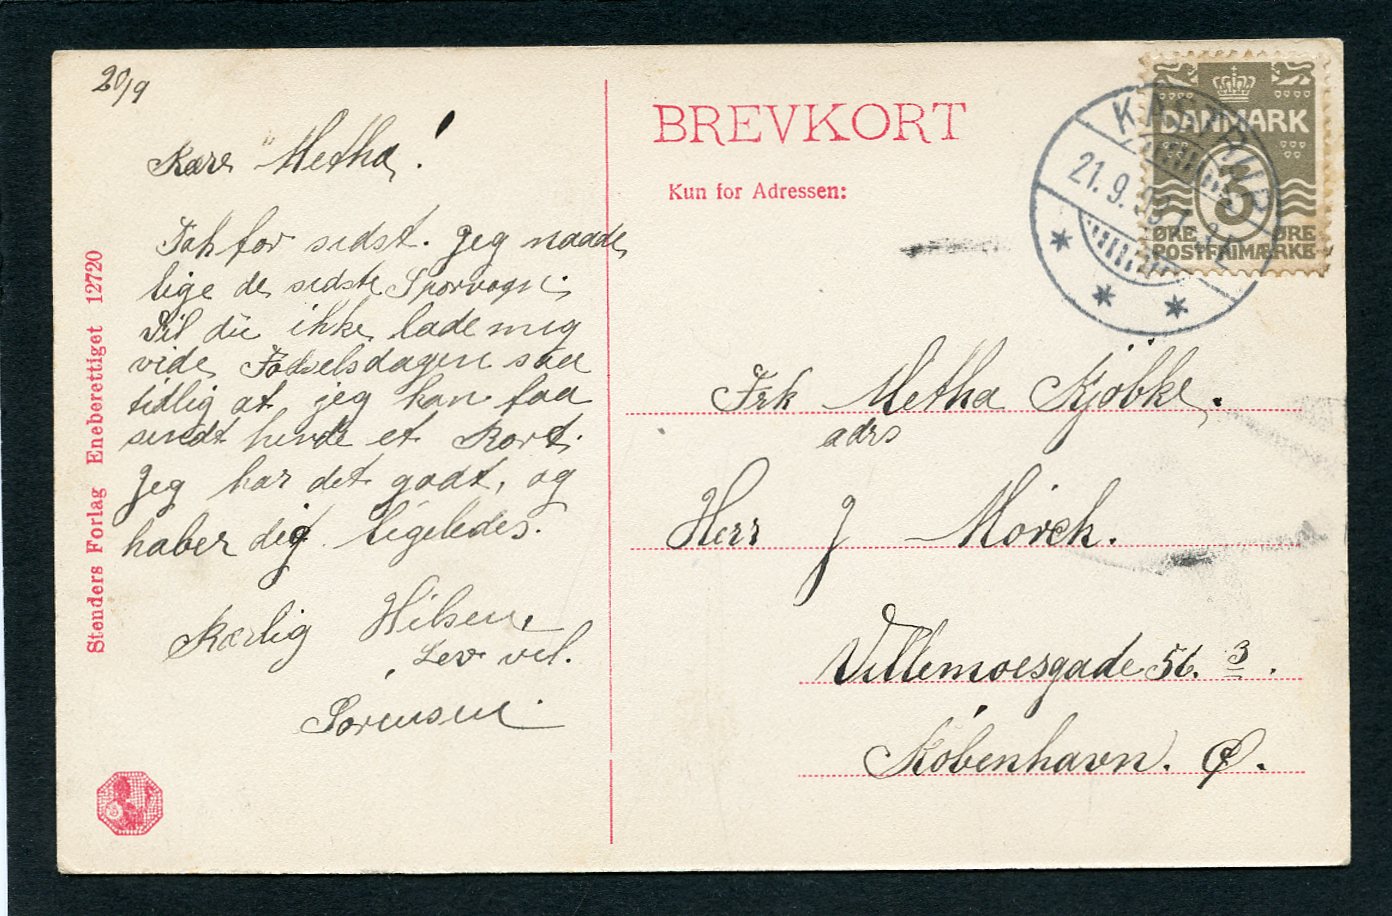 20/9
Kære Metha!
Tak for sidst. Jeg naade
lige de sidste Sporvogn;
Vil du ikke lade mig
vide Fødselsdagen saa
tidlig at jeg kan faa
sendt hende et Kort.
Jeg har det godt, og
haber dig ligeledes.
Kærlig Hilsen,
Lev vel.
Sørensen
Stenders Forlag Eneberettiget 12720
BREVKORT
Kun for Adressen:
KASTRUP
21.9.
DANMARK
3
ØRE ØRE
POSTFRIMÆRKE
Frk Metha Kjøbke.
adrs
Herr J Mörch.
Villemoesgade 56. 3.
København. Ø.